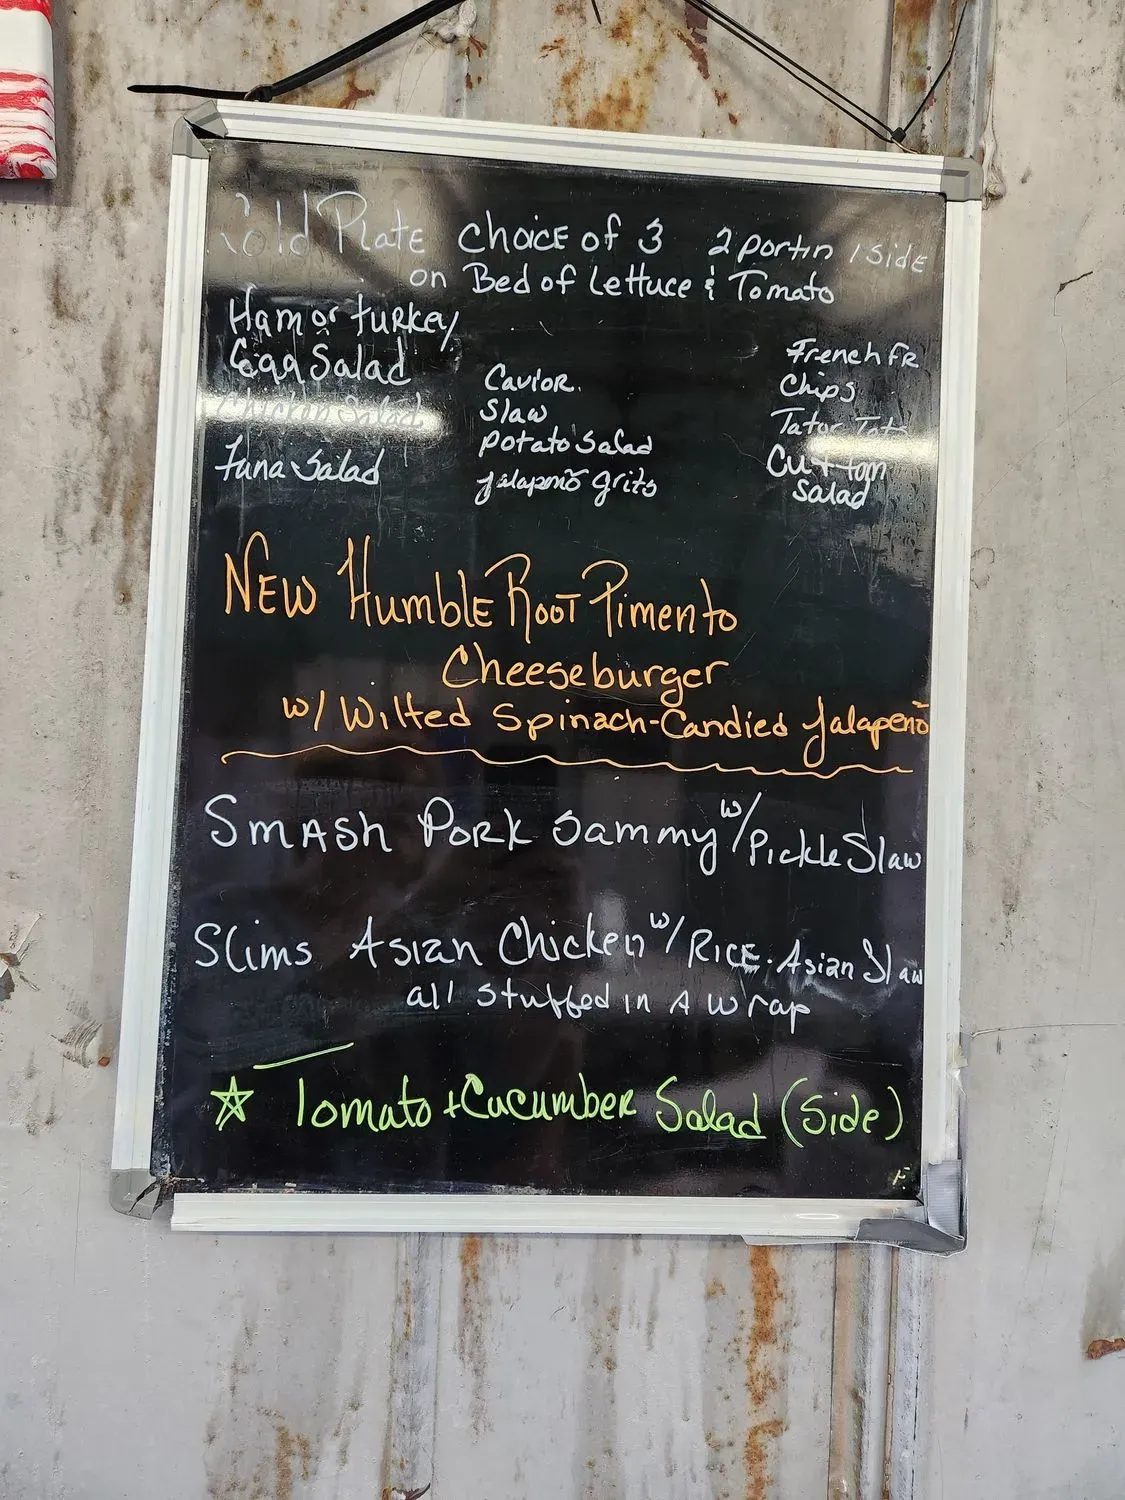 Cold Plate Choice of 3 2 portin 1 side
on Bed of Lettuce & Tomato
Ham or turkey
Egg Salad
Chicken Salad
Tuna Salad
Cavior
Slaw
Potato Salad
jalapeñõ grits
French FR
Chips
Tator Tots
Salad
NEW Humble Root Pimento
Cheeseburger
w/ Wilted Spinach-Candied Jalapeño
Smash Pork Sammy w/ Pickle Slaw
Slims Asian Chicken w/ Rice. Asian Slaw
all stuffed in a wrap
☆ Tomato + Cucumber Salad (Side)